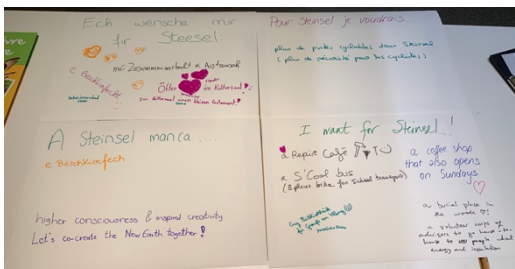 Ech wënsche mir
fir Steesel:
méi Zesummenarbelt & Austausch
e Bëschkierfecht
Öfter
am Kultursall
Pour Steinsel je voudrais...
plus de pistes cyclables dans Steinsel
(plus de sécurité pour les cyclistes)
A Steinsel manca....
e Bëschkierfech
higher consciousness & inspired creativity
Let's co-create the New Earth together!
I want for Steinsel..!
a Repair Café
a S'Cool bus
(8 place bike for school transport)
a coffee shop
that also opens
on Sundays
a burial place in
the woods
a volunteer corps of
advisers to go house-to-
house to tell people about
energy and insulation